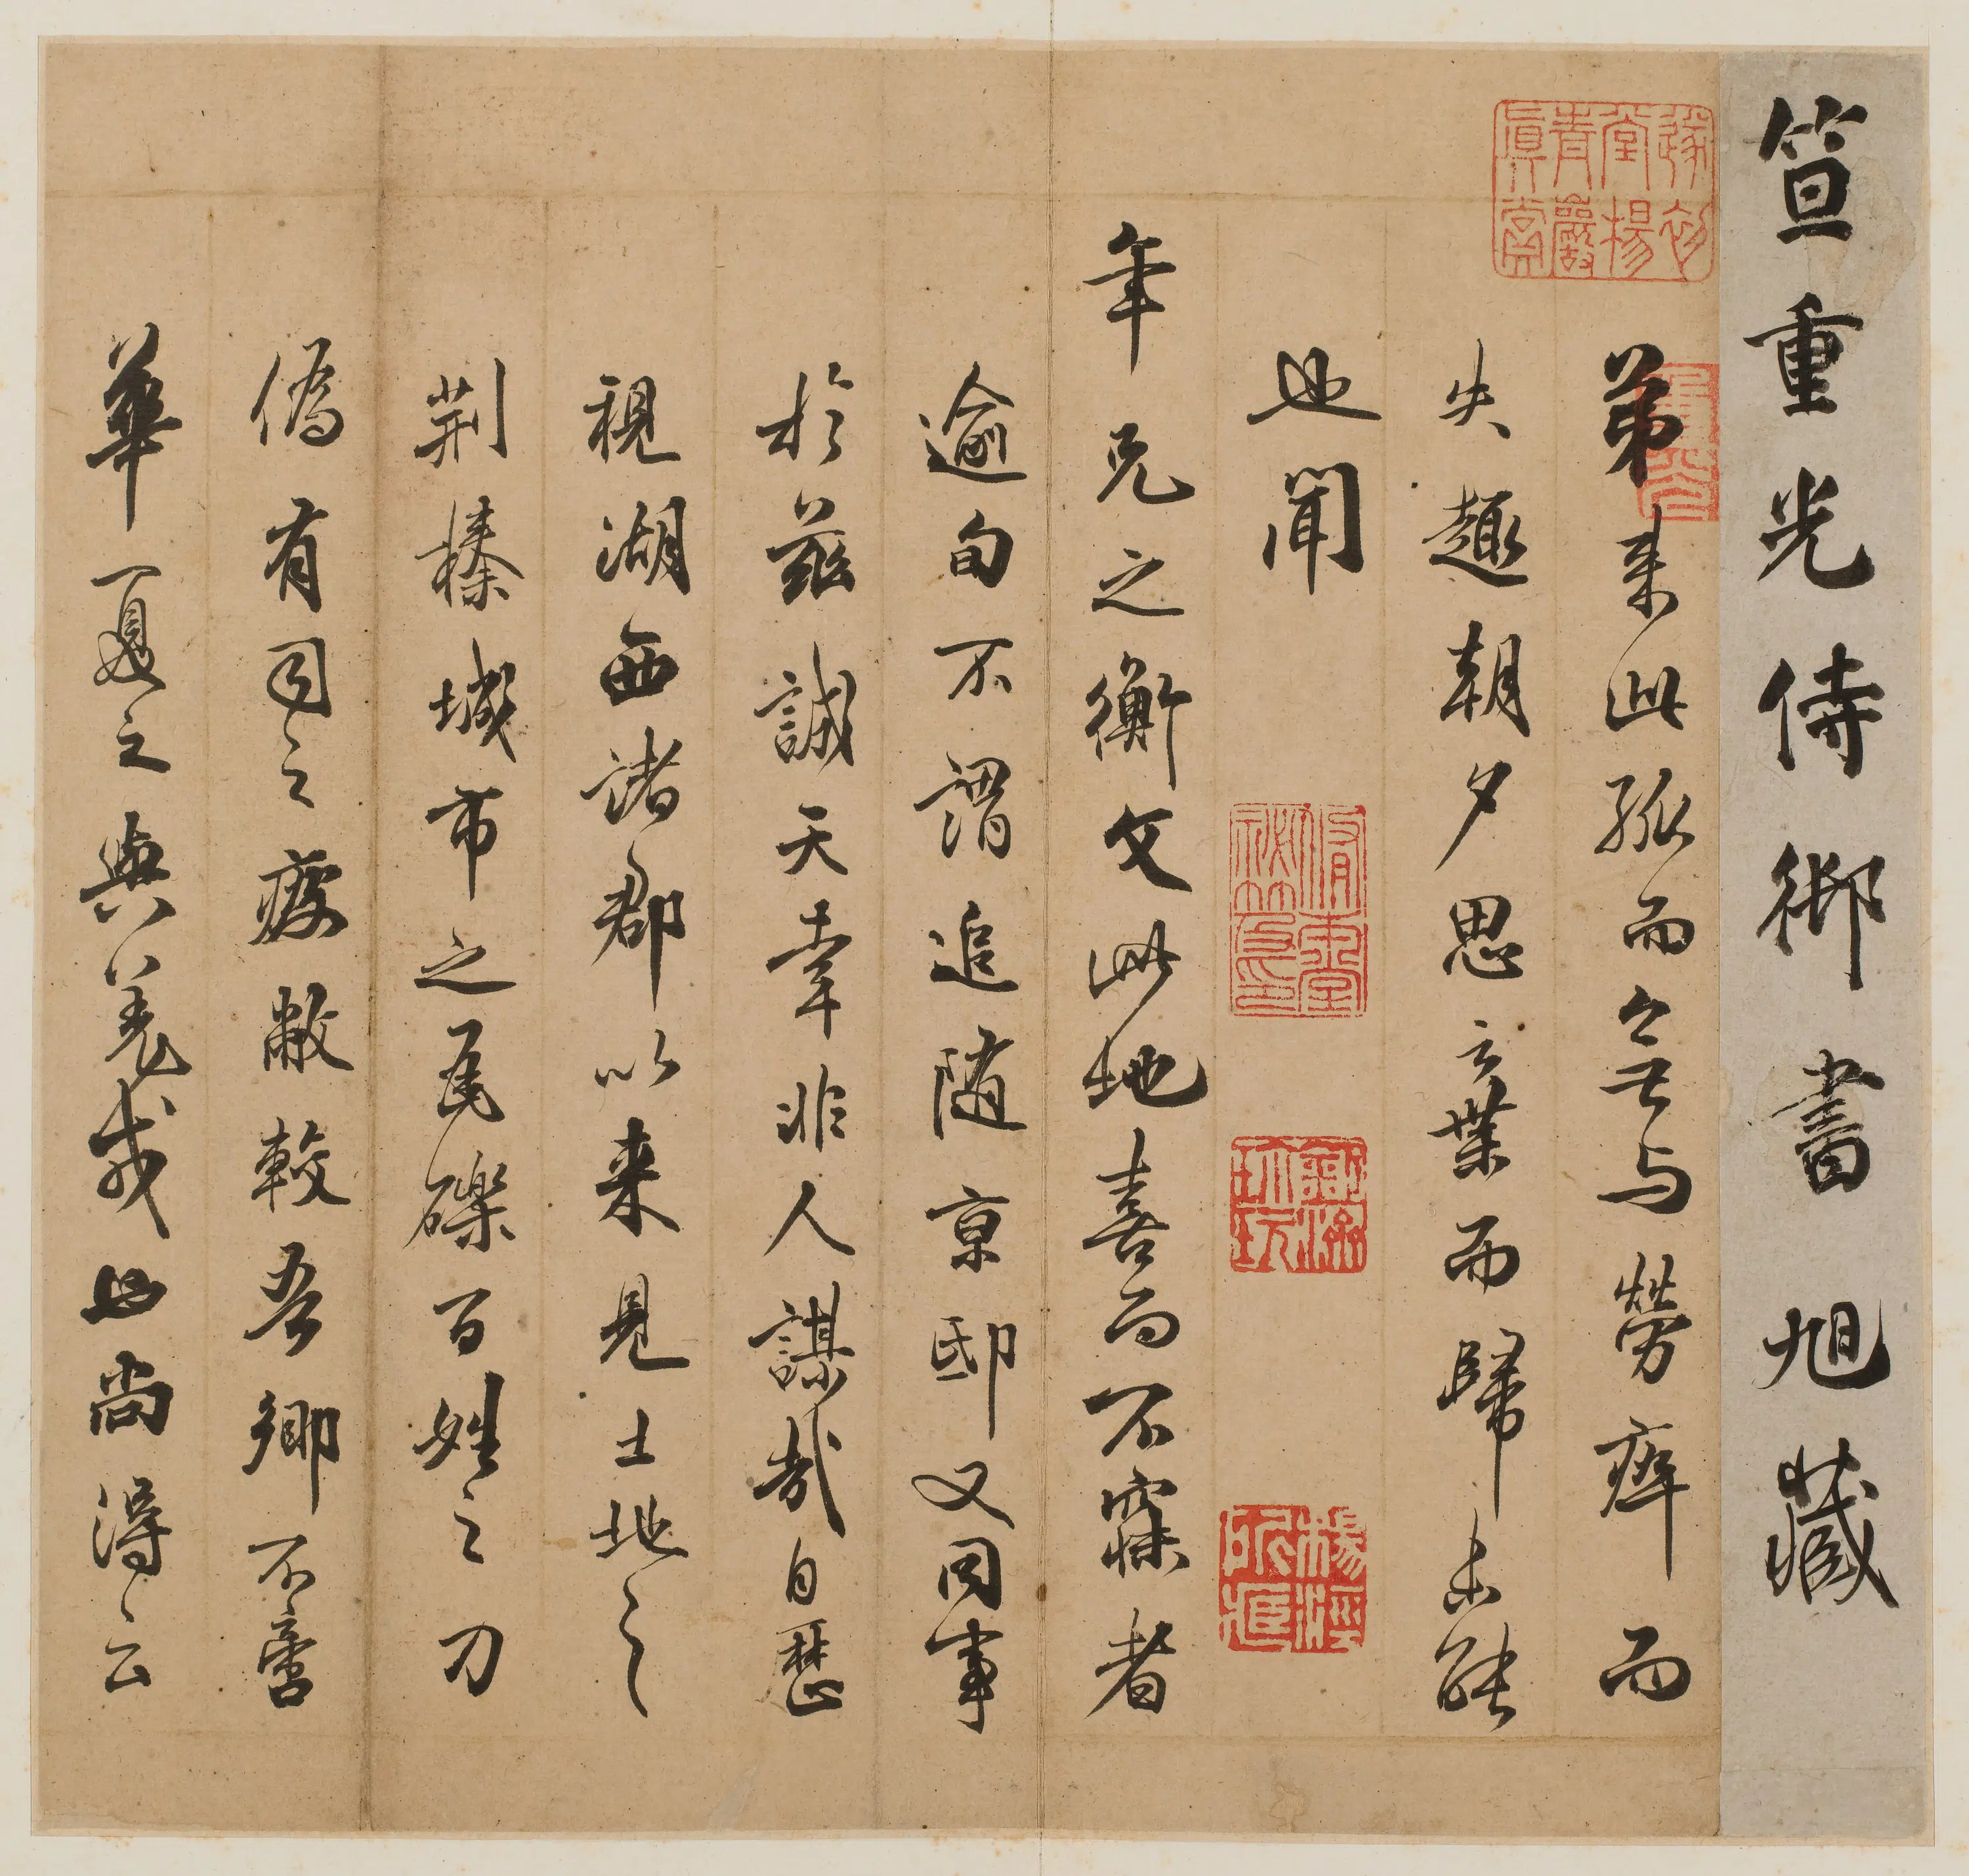 笪重光侍御書 旭藏
弟来此孤而無与勞瘁而
失趣朝夕思去業而歸未能
也聞
年兄之衡文此地喜而不寐者
逾旬不謂追随京邸又同事
於兹誠天幸非人謀哉自歷
視湖西諸郡以来見土地之
荆榛城市之瓦礫百姓之刀
傷有司之疲敝較吾鄉不啻
華夏之與羌戎也尚得云